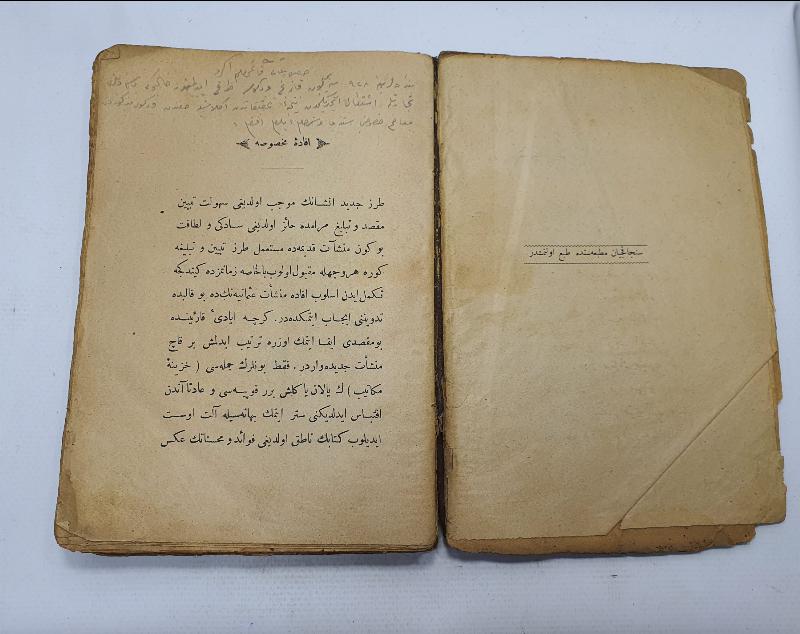 سنجاقجیان مطبعه‌سنده طبع اولنمشدر
افادهٔ مخصوصه
طرز جدید انشانك موجب اولدیغی سهولت تبیین
مقصد و تبلیغ مرامده حائز اولدیغی ساده‌کی و لطافت
بوکون منشآت قدیمه‌ده مستعمل طرز تبیین و تبلیغه
کوره هر وجهله مقبول اولوب بالخاصه زمانمزده کیتدکجه
تکمل ایدن اسلوب افاده منشأت عثمانیه‌نك‌ده بو قالبده
تدوینی ایجاب ایتمکده‌در. کرچه ایادیٔ قارئینده
بو مقصدی ایفا ایتمك اوزره ترتیب ایدلمش بر قاچ
منشأت جدیده واردر. فقط بونلرك جمله‌سی (خزینهٔ
مکاتیب) ك یالان یاکلش برر قوپیه‌سی و عادتا آندن
اقتباس ایدلدیکنی ستر ایتمك بهانه‌سیله آلت اوست
ایدیلوب کتابك ناطق اولدیغی فوائد و محسناتك عکس